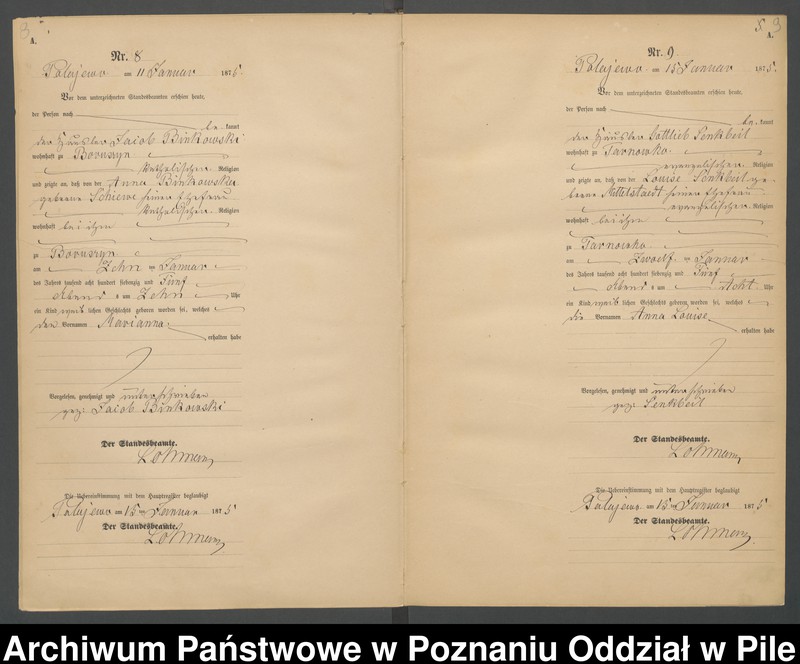 A.
Nr. 8
Polajewo am 11 Januar 1875.
Vor dem unterzeichneten Standesbeamten erschien heute,
der Person nach
be kannt
der Häusler Jacob Binkowski
wohnhaft zu Boruszyn
katholischer Religion
und zeigte an, daß von der Anna Binkowska
geborene Schiewe seiner Ehefrau
katholischer Religion
wohnhaft bei ihm
zu Boruszyn
am Zehn ten Januar
des Jahres tausend acht hundert siebenzig und Fünf
Abend s um Zehn Uhr
ein Kind weib lichen Geschlechts geboren worden sei, welches
den Vornamen Marianna
erhalten habe
Vorgelesen, genehmigt und unterschrieben
gez: Jacob Binkowski
Der Standesbeamte.
Lohmann
Die Uebereinstimmung mit dem Hauptregister beglaubigt
Polajewo am 15 ten Januar 1875
Der Standesbeamte.
Lohmann
9
A.
Nr. 9
Polajewo am 15 Januar 1875.
Vor dem unterzeichneten Standesbeamten erschien heute,
der Person nach
be kannt
der Häusler Gottlieb Senkbeil
wohnhaft zu Tarnowko
evangelischer Religion
und zeigte an, daß von der Louise Senkbeil ge-
borene Mittelstaedt seiner Ehefrau
evangelischer Religion
wohnhaft bei ihm
zu Tarnowko
am Zwoelf ten Januar
des Jahres tausend acht hundert siebenzig und Fünf
Abend s um Acht Uhr
ein Kind weib lichen Geschlechts geboren worden sei, welches
die Vornamen Anna Louise
erhalten habe
Vorgelesen, genehmigt und unterschrieben
gez: Senkbeil
Der Standesbeamte.
Lohmann
Die Uebereinstimmung mit dem Hauptregister beglaubigt
Polajewo am 15 ten Januar 1875
Der Standesbeamte.
Lohmann
Archiwum Państwowe w Poznaniu Oddział w Pile